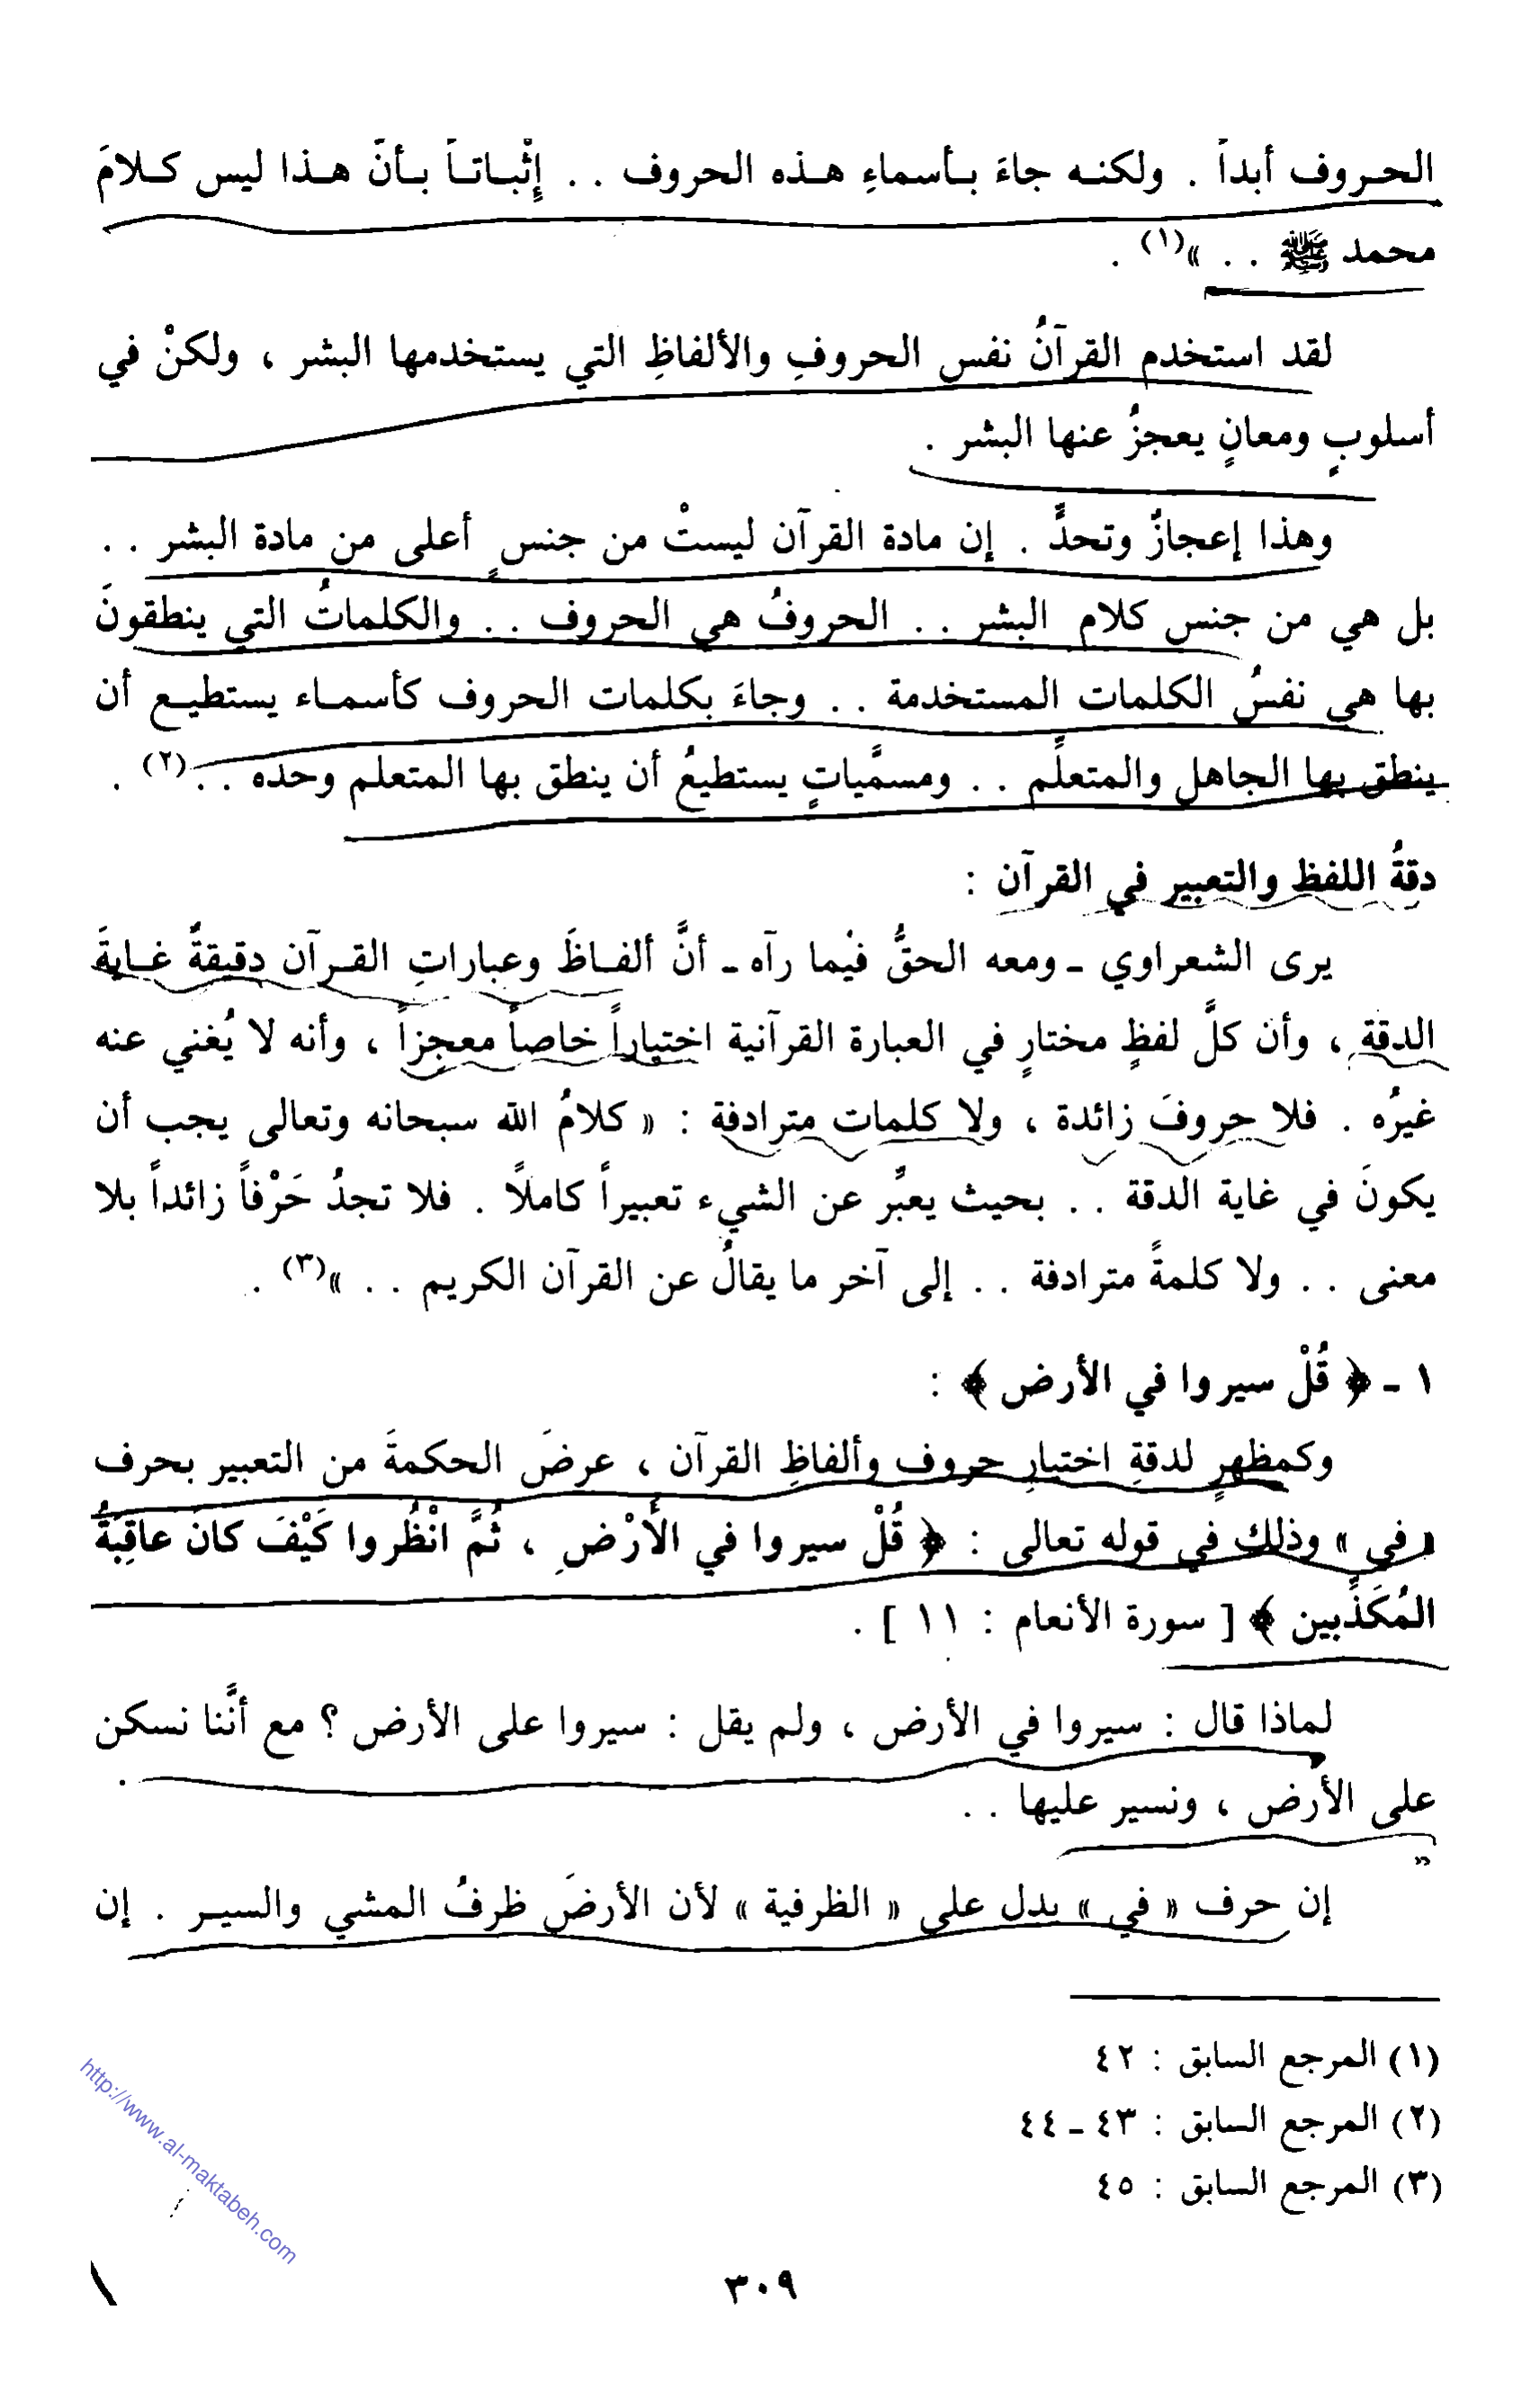 الحـروف أبداً . ولكنـه جاءَ بـأسماءِ هـذه الحروف . . إِثْبـاتـاً بـأنَّ هـذا ليس كـلامَ
محمد ﷺ . . »(١) .
لقد استخدم القرآنُ نفس الحروفِ والألفاظِ التي يستخدمها البشر ، ولكنْ في
أسلوبٍ ومعانٍ يعجزُ عنها البشر .
وهذا إعجازٌ وتحدٍّ . إن مادة القرآن ليستْ من جنسٍ أعلى من مادة البشر . .
بل هي من جنس كلام البشر . . الحروفُ هي الحروف . . والكلماتُ التي ينطقونَ
بها هي نفسُ الكلمات المستخدمة . . وجاءَ بكلمات الحروف كأسمـاء يستطيـع أن
ينطق بها الجاهل والمتعلِّم . . ومسمَّياتٍ يستطيعُ أن ينطق بها المتعلم وحده . .(٢) .
دقةُ اللفظ والتعبير في القرآن :
يرى الشعراوي ـ ومعه الحقُّ فيْما رآه ـ أنَّ ألفـاظَ وعباراتِ القـرآن دقيقةٌ غـايةَ
الدقة ، وأن كلَّ لفظٍ مختارٍ في العبارة القرآنية اختياراً خاصاً معجِزاً ، وأنه لا يُغني عنه
غيرُه . فلا حروفَ زائدة ، ولا كلمات مترادفة : « كلامُ الله سبحانه وتعالى يجب أن
يكونَ في غاية الدقة . . بحيث يعبِّر عن الشيء تعبيراً كاملاً . فلا تجدُ حَرْفاً زائداً بلا
معنى . . ولا كلمةً مترادفة . . إلى آخر ما يقالُ عن القرآن الكريم . . »(٣) .
١ ـ ﴿ قُلْ سيروا في الأرض ﴾ :
وكمظهرٍ لدقةِ اختيارِ حروف وألفاظِ القرآن ، عرضَ الحكمةَ من التعبير بحرف
« في » وذلك في قوله تعالى : ﴿ قُلْ سيروا في الأَرْضِ ، ثُمَّ انْظُروا كَيْفَ كانَ عاقِبَةُ
المُكَذِّبين ﴾ [ سورة الأنعام : ١١ ] .
لماذا قال : سيروا في الأرض ، ولم يقل : سيروا على الأرض ؟ مع أنَّنا نسكن
على الأرض ، ونسير عليها . .
إن حرف « في » يدل على « الظرفية » لأن الأرضَ ظرفُ المشي والسيـر . إن
(١) المرجع السابق : ٤٢
(٢) المرجع السابق : ٤٣ ـ ٤٤
(٣) المرجع السابق : ٤٥
http://www.al-maktabeh.com
٣٠٩